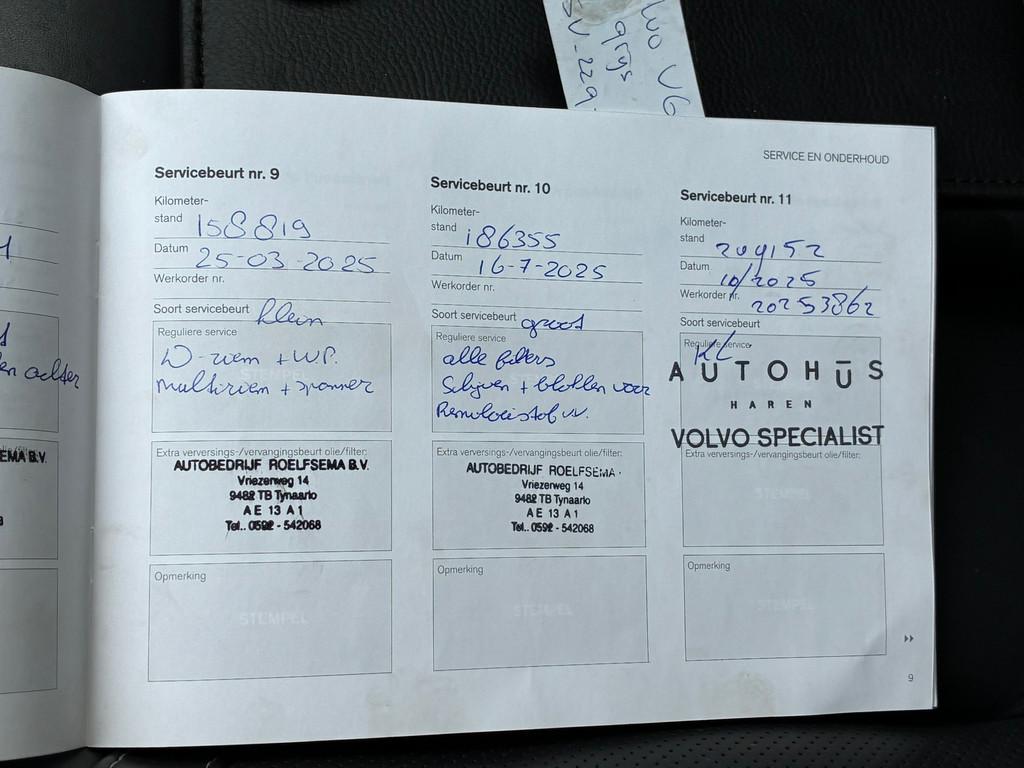 VO V6
grijs
SV-229
SERVICE EN ONDERHOUD
en achter
EMA B.V.
Servicebeurt nr. 9
Kilometer-
stand 158819
Datum 25-03-2025
Werkorder nr.
Soort servicebeurt klein
Reguliere service
D-riem + WP.
multiriem + spanner
STEMPEL
Extra verversings-/vervangingsbeurt olie/filter:
AUTOBEDRIJF ROELFSEMA B.V.
Vriezerweg 14
9482 TB Tynaarlo
AE 13 A1
Tel.. 0592 - 542068
Opmerking
STEMPEL
Servicebeurt nr. 10
Kilometer-
stand 186355
Datum 16-7-2025
Werkorder nr.
Soort servicebeurt groot
Reguliere service
alle filters
Schijven + blokken voor
Remvloeistof vv.
Extra verversings-/vervangingsbeurt olie/filter:
AUTOBEDRIJF ROELFSEMA
Vriezerweg 14
9482 TB Tynaarlo
AE 13 A1
Tel.. 0592 - 542068
Opmerking
STEMPEL
Servicebeurt nr. 11
Kilometer-
stand 209152
Datum 10/2025
Werkorder nr. 20253862
Soort servicebeurt
Reguliere service
KL
AUTOHŪS
HAREN
VOLVO SPECIALIST
Extra verversings-/vervangingsbeurt olie/filter:
STEMPEL
Opmerking
STEMPEL
9